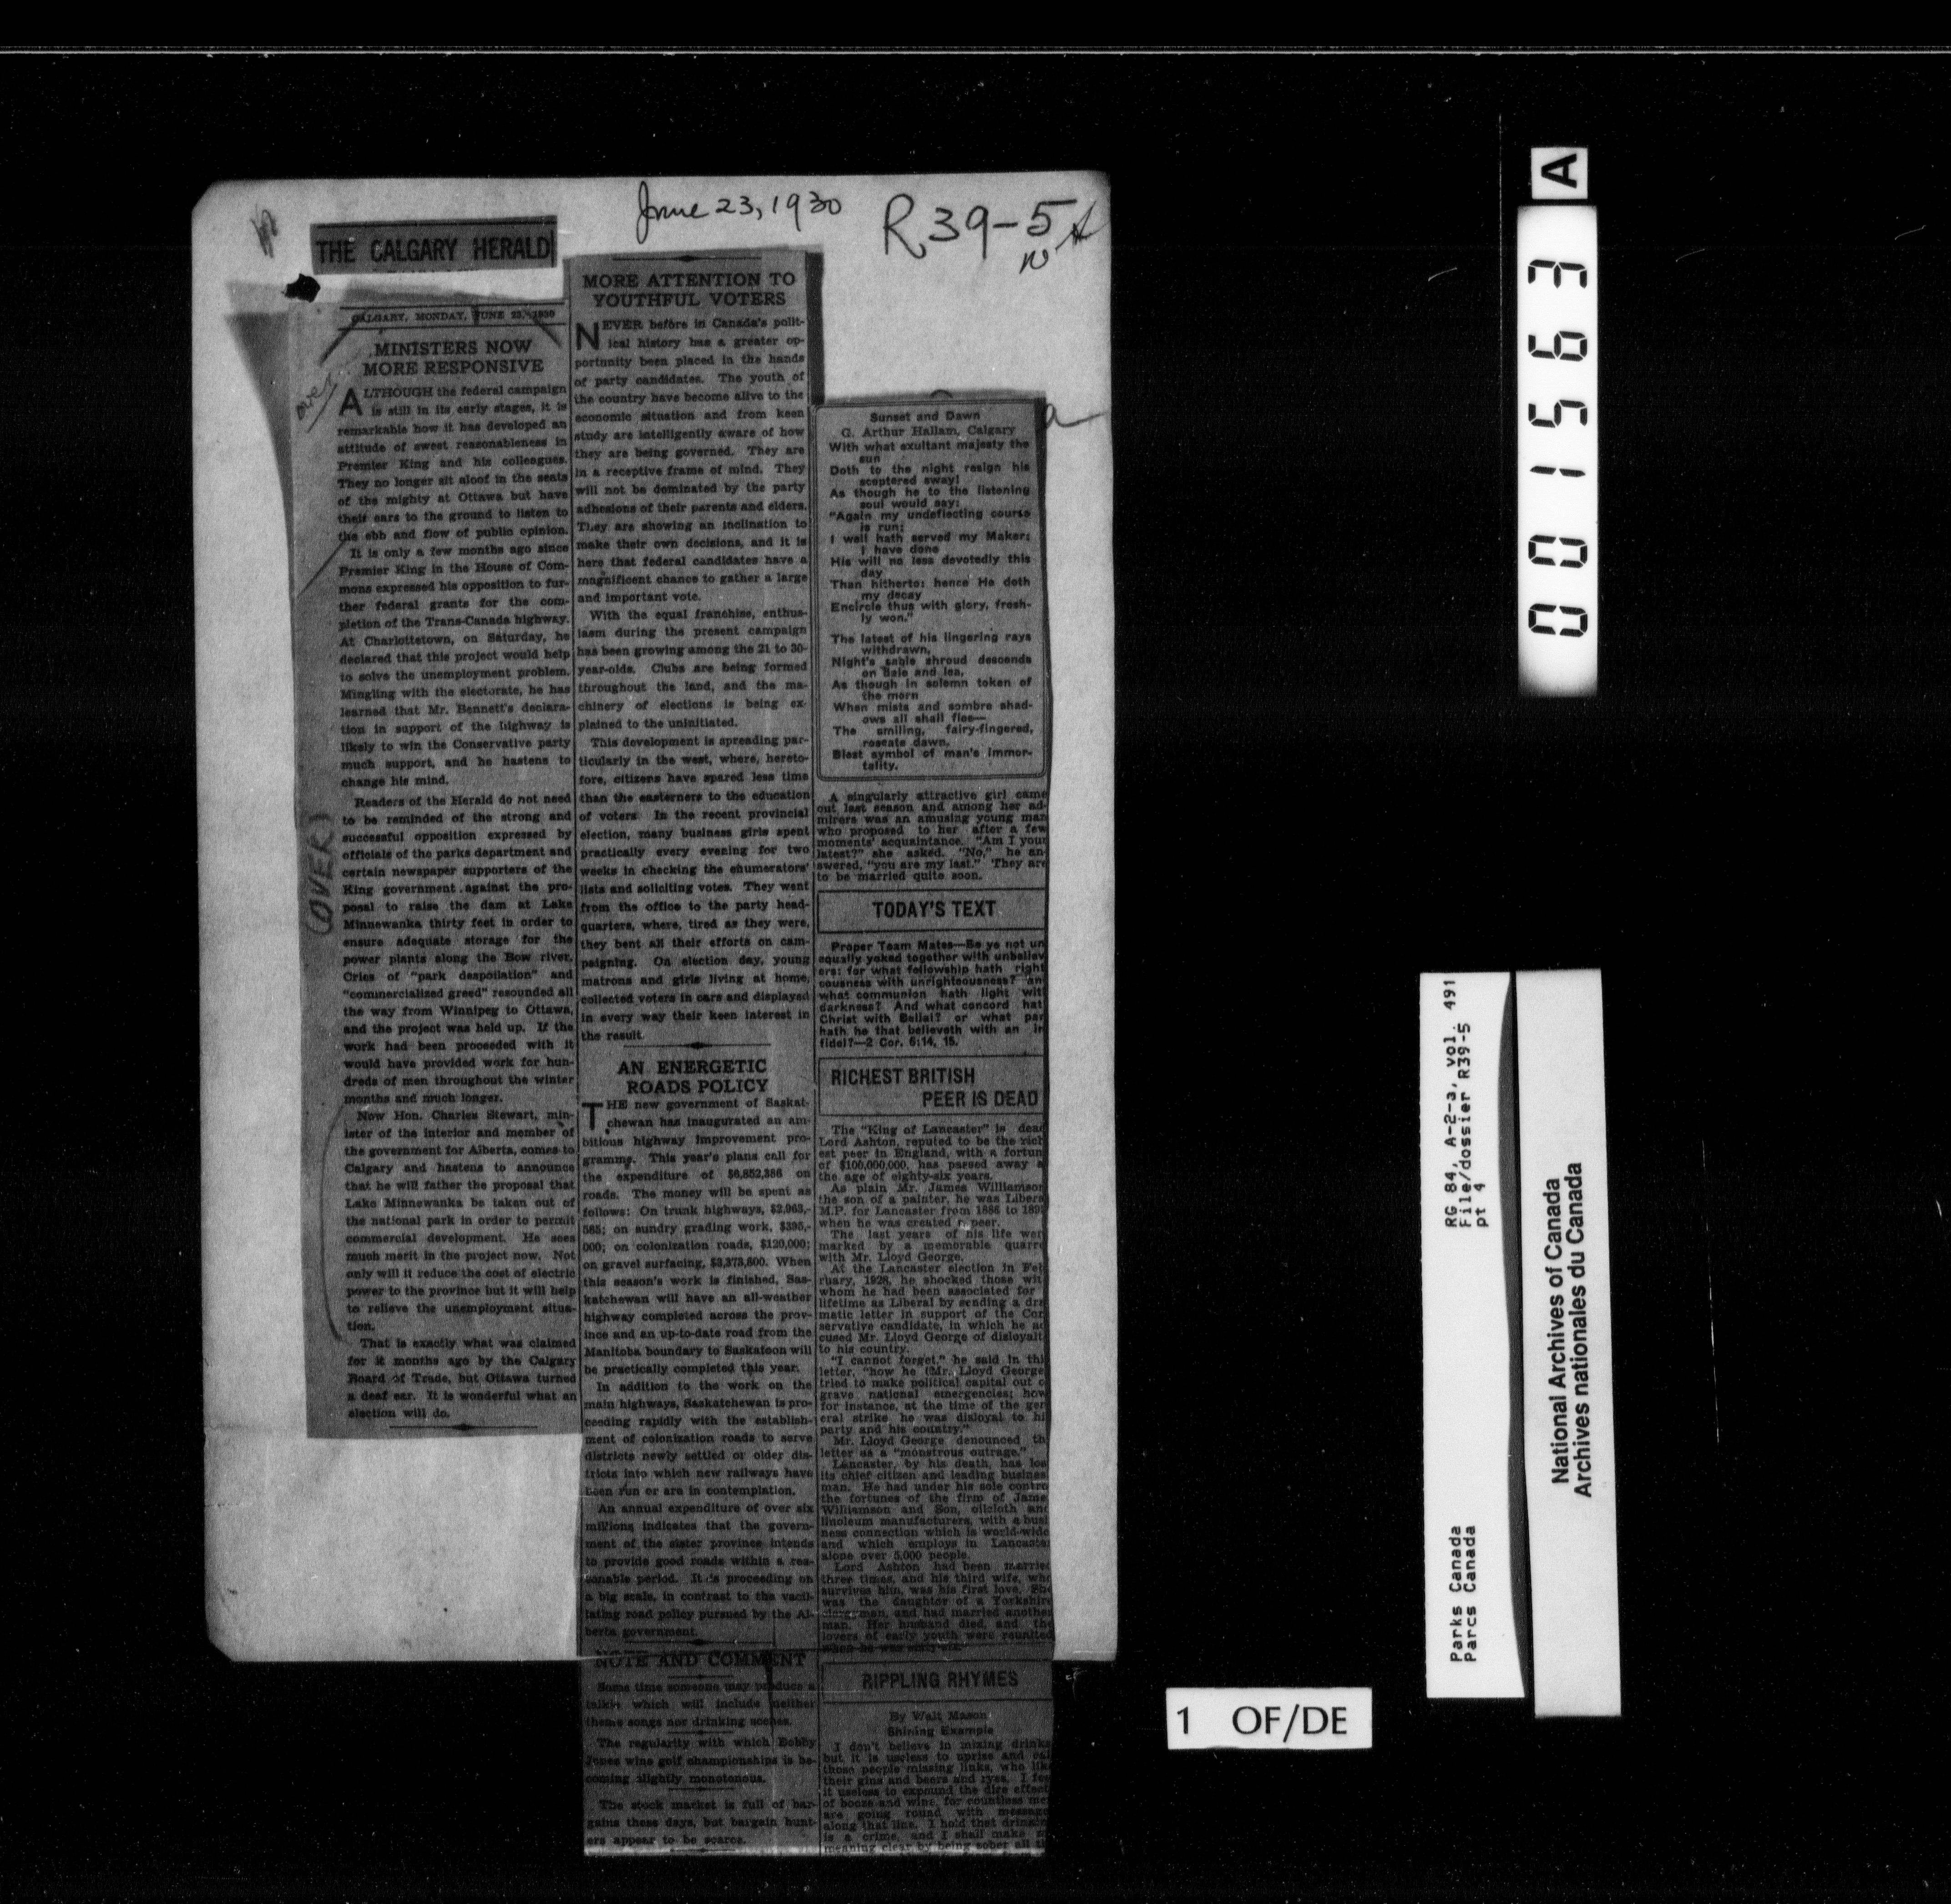 June 23, 1930
R39-5
THE CALGARY HERALD
CALGARY, MONDAY, JUNE 23, 1930
MINISTERS NOW
MORE RESPONSIVE
over
ALTHOUGH the federal campaign
is still in its early stages, it is
remarkable how it has developed an
attitude of sweet reasonableness in
Premier King and his colleagues.
They no longer sit aloof in the seats
of the mighty at Ottawa but have
their ears to the ground to listen to
the ebb and flow of public opinion.
It is only a few months ago since
Premier King in the House of Com-
mons expressed his opposition to fur-
ther federal grants for the com-
pletion of the Trans-Canada highway.
At Charlottetown, on Saturday, he
declared that this project would help
to solve the unemployment problem.
Mingling with the electorate, he has
learned that Mr. Bennett's declara-
tion in support of the highway is
likely to win the Conservative party
much support, and he hastens to
change his mind.
(OVER)
Readers of the Herald do not need
to be reminded of the strong and
successful opposition expressed by
officials of the parks department and
certain newspaper supporters of the
King government against the pro-
posal to raise the dam at Lake
Minnewanka thirty feet in order to
ensure adequate storage for the
power plants along the Bow river.
Cries of "park despoilation" and
"commercialized greed" resounded all
the way from Winnipeg to Ottawa,
and the project was held up. If the
work had been proceeded with it
would have provided work for hun-
dreds of men throughout the winter
months and much longer.
Now Hon. Charles Stewart, min-
ister of the interior and member of
the government for Alberta, comes to
Calgary and hastens to announce
that he will father the proposal that
Lake Minnewanka be taken out of
the national park in order to permit
commercial development. He sees
much merit in the project now. Not
only will it reduce the cost of electric
power to the province but it will help
to relieve the unemployment situa-
tion.
That is exactly what was claimed
for it months ago by the Calgary
Board of Trade, but Ottawa turned
a deaf ear. It is wonderful what an
election will do.
MORE ATTENTION TO
YOUTHFUL VOTERS
NEVER before in Canada's polit-
ical history has a greater op-
portunity been placed in the hands
of party candidates. The youth of
the country have become alive to the
economic situation and from keen
study are intelligently aware of how
they are being governed. They are
in a receptive frame of mind. They
will not be dominated by the party
adhesions of their parents and elders.
They are showing an inclination to
make their own decisions, and it is
here that federal candidates have a
magnificent chance to gather a large
and important vote.
With the equal franchise, enthus-
iasm during the present campaign
has been growing among the 21 to 30-
year-olds. Clubs are being formed
throughout the land, and the ma-
chinery of elections is being ex-
plained to the uninitiated.
This development is spreading par-
ticularly in the west, where, hereto-
fore, citizens have spared less time
than the easterners to the education
of voters. In the recent provincial
election, many business girls spent
practically every evening for two
weeks in checking the enumerators'
lists and soliciting votes. They went
from the office to the party head-
quarters, where, tired as they were,
they bent all their efforts on cam-
paigning. On election day, young
matrons and girls living at home,
collected voters in cars and displayed
in every way their keen interest in
the result.
AN ENERGETIC
ROADS POLICY
THE new government of Saskat-
chewan has inaugurated an am-
bitious highway improvement pro-
gramme. This year's plans call for
the expenditure of $6,852,386 on
roads. The money will be spent as
follows: On trunk highways, $2,963,-
585; on sundry grading work, $395,-
000; on colonization roads, $120,000;
on gravel surfacing, $3,373,800. When
this season's work is finished, Sas-
katchewan will have an all-weather
highway completed across the prov-
ince and an up-to-date road from the
Manitoba boundary to Saskatoon will
be practically completed this year.
In addition to the work on the
main highways, Saskatchewan is pro-
ceeding rapidly with the establish-
ment of colonization roads to serve
districts newly settled or older dis-
tricts into which new railways have
been run or are in contemplation.
An annual expenditure of over six
millions indicates that the govern-
ment of the sister province intends
to provide good roads within a rea-
sonable period. It is proceeding on
a big scale, in contrast to the vacil-
lating road policy pursued by the Al-
berta government.
NOTE AND COMMENT
Some time someone may produce a
talkie which will include neither
theme songs nor drinking scenes.
The regularity with which Bobby
Jones wins golf championships is be-
coming slightly monotonous.
The stock market is full of bar-
gains these days, but bargain hunt-
ers appear to be scarce.
Sunset and Dawn
G. Arthur Hallam, Calgary
With what exultant majesty the
sun
Doth to the night resign his
sceptered sway!
As though he to the listening
soul would say:
"Again my undeflecting course
is run;
I well hath served my Maker;
I have done
His will no less devotedly this
day
Than hitherto; hence He doth
my decay
Encircle thus with glory, fresh-
ly won."
The latest of his lingering rays
withdrawn,
Night's sable shroud descends
on dale and lea,
As though in solemn token of
the morn
When mists and sombre shad-
ows all shall flee—
The smiling, fairy-fingered,
roseate dawn,
Blest symbol of man's immor-
tality.
A singularly attractive girl came
out last season and among her ad-
mirers was an amusing young man
who proposed to her after a few
moments' acquaintance. "Am I your
latest?" she asked. "No," he an-
swered, "you are my last." They are
to be married quite soon.
TODAY'S TEXT
Proper Team Mates—Be ye not un
equally yoked together with unbeliev
ers: for what fellowship hath right
eousness with unrighteousness? an
what communion hath light wit
darkness? And what concord hat
Christ with Belial? or what par
hath he that believeth with an in
fidel?—2 Cor. 6:14, 15.
RICHEST BRITISH
PEER IS DEAD
The "King of Lancaster" is dead
Lord Ashton, reputed to be the rich
est peer in England, with a fortun
of $100,000,000, has passed away a
the age of eighty-six years.
As plain Mr. James Williamson
the son of a painter, he was Libera
M.P. for Lancaster from 1886 to 1895
when he was created a peer.
The last years of his life wer
marked by a memorable quarre
with Mr. Lloyd George.
At the Lancaster election in Feb
ruary, 1928, he shocked those wit
whom he had been associated for
lifetime as Liberal by sending a dra
matic letter in support of the Con
servative candidate, in which he ac
cused Mr. Lloyd George of disloyalt
to his country.
"I cannot forget," he said in thi
letter, "how he (Mr. Lloyd George
tried to make political capital out o
grave national emergencies; how
for instance, at the time of the gen
eral strike he was disloyal to hi
party and his country."
Mr. Lloyd George denounced th
letter as a "monstrous outrage."
Lancaster, by his death, has los
its chief citizen and leading busines
man. He had under his sole contro
the fortunes of the firm of Jame
Williamson and Son, oilcloth and
linoleum manufacturers, with a busi
ness connection which is world-wide
and which employs in Lancaster
alone over 5,000 people.
Lord Ashton had been married
three times, and his third wife, who
survives him, was his first love. She
was the daughter of a Yorkshire
clergyman, and had married another
man. Her husband died, and the
lovers of early youth were reunited
when he was sixty-six.
RIPPLING RHYMES
By Walt Mason
Shining Example
I don't believe in mixing drinks
but it is useless to uprise and cal
those people missing links, who like
their gins and beers and ryes. I fee
it useless to expound the dire effect
of booze and wine, for countless me
are going round with message
along that line. I hold that drinkin
is a crime, and I shall make m
meaning clear by being sober all th
A
001563
RG 84, A-2-a, vol. 491
File/dossier R39-5
pt 4
Parks Canada
Parcs Canada
National Archives of Canada
Archives nationales du Canada
1 OF/DE